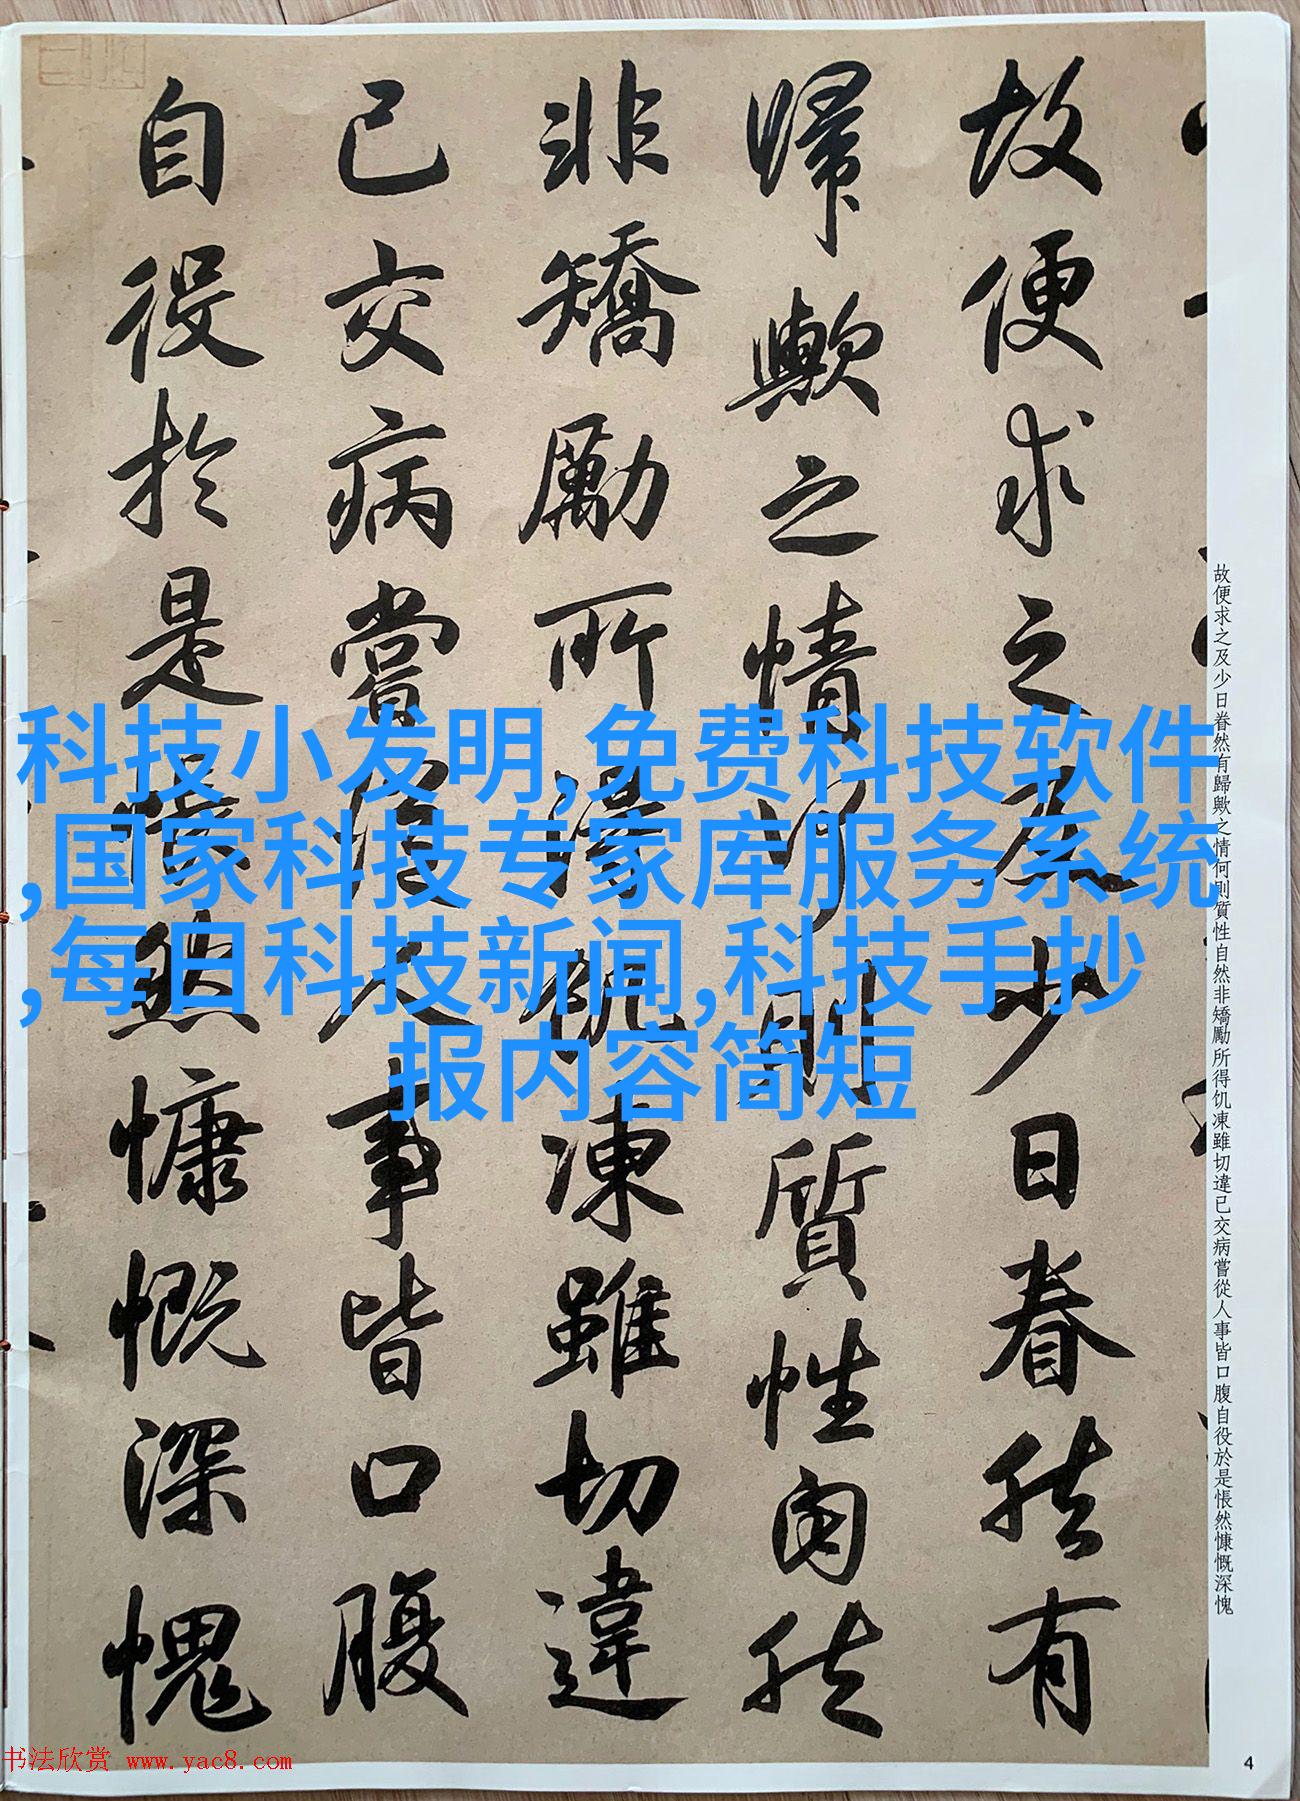 故便求之及少日眷然有
歸歟之情何則質性自然
非矯勵所得飢凍雖切違
已交病嘗從人事皆口腹
自役於是悵然慷慨深愧
科技小发明,免费科技软件
,国家科技专家库服务系统
,每日科技新闻,科技手抄
报内容简短
故便求之及少日眷然有歸歟之情何則質性自然非矯勵所得饥凍雖切違已交病嘗從人事皆口腹自役於是悵然慷慨深愧
书法欣赏 www.yac8.com
4